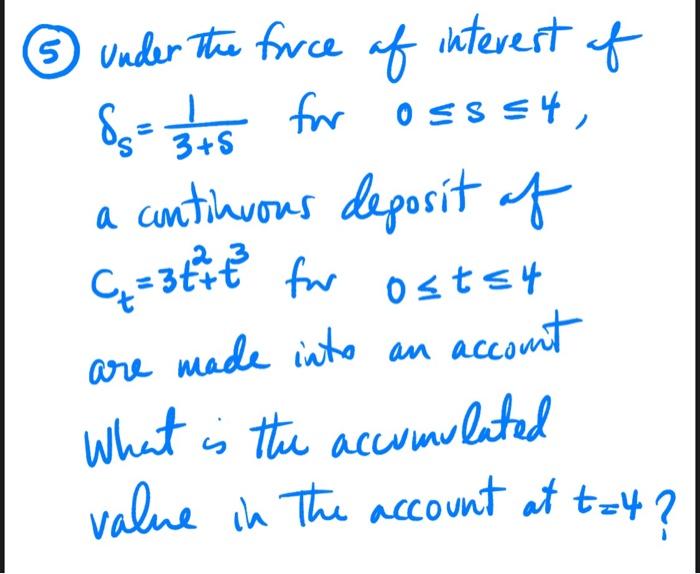 ⑤ Under the force of interest of
δₛ = 1/(3+s) for 0 ≤ s ≤ 4,
a continuous deposit of
Cₜ = 3t² + t³ for 0 ≤ t ≤ 4
are made into an account
What is the accumulated
value in the account at t=4?